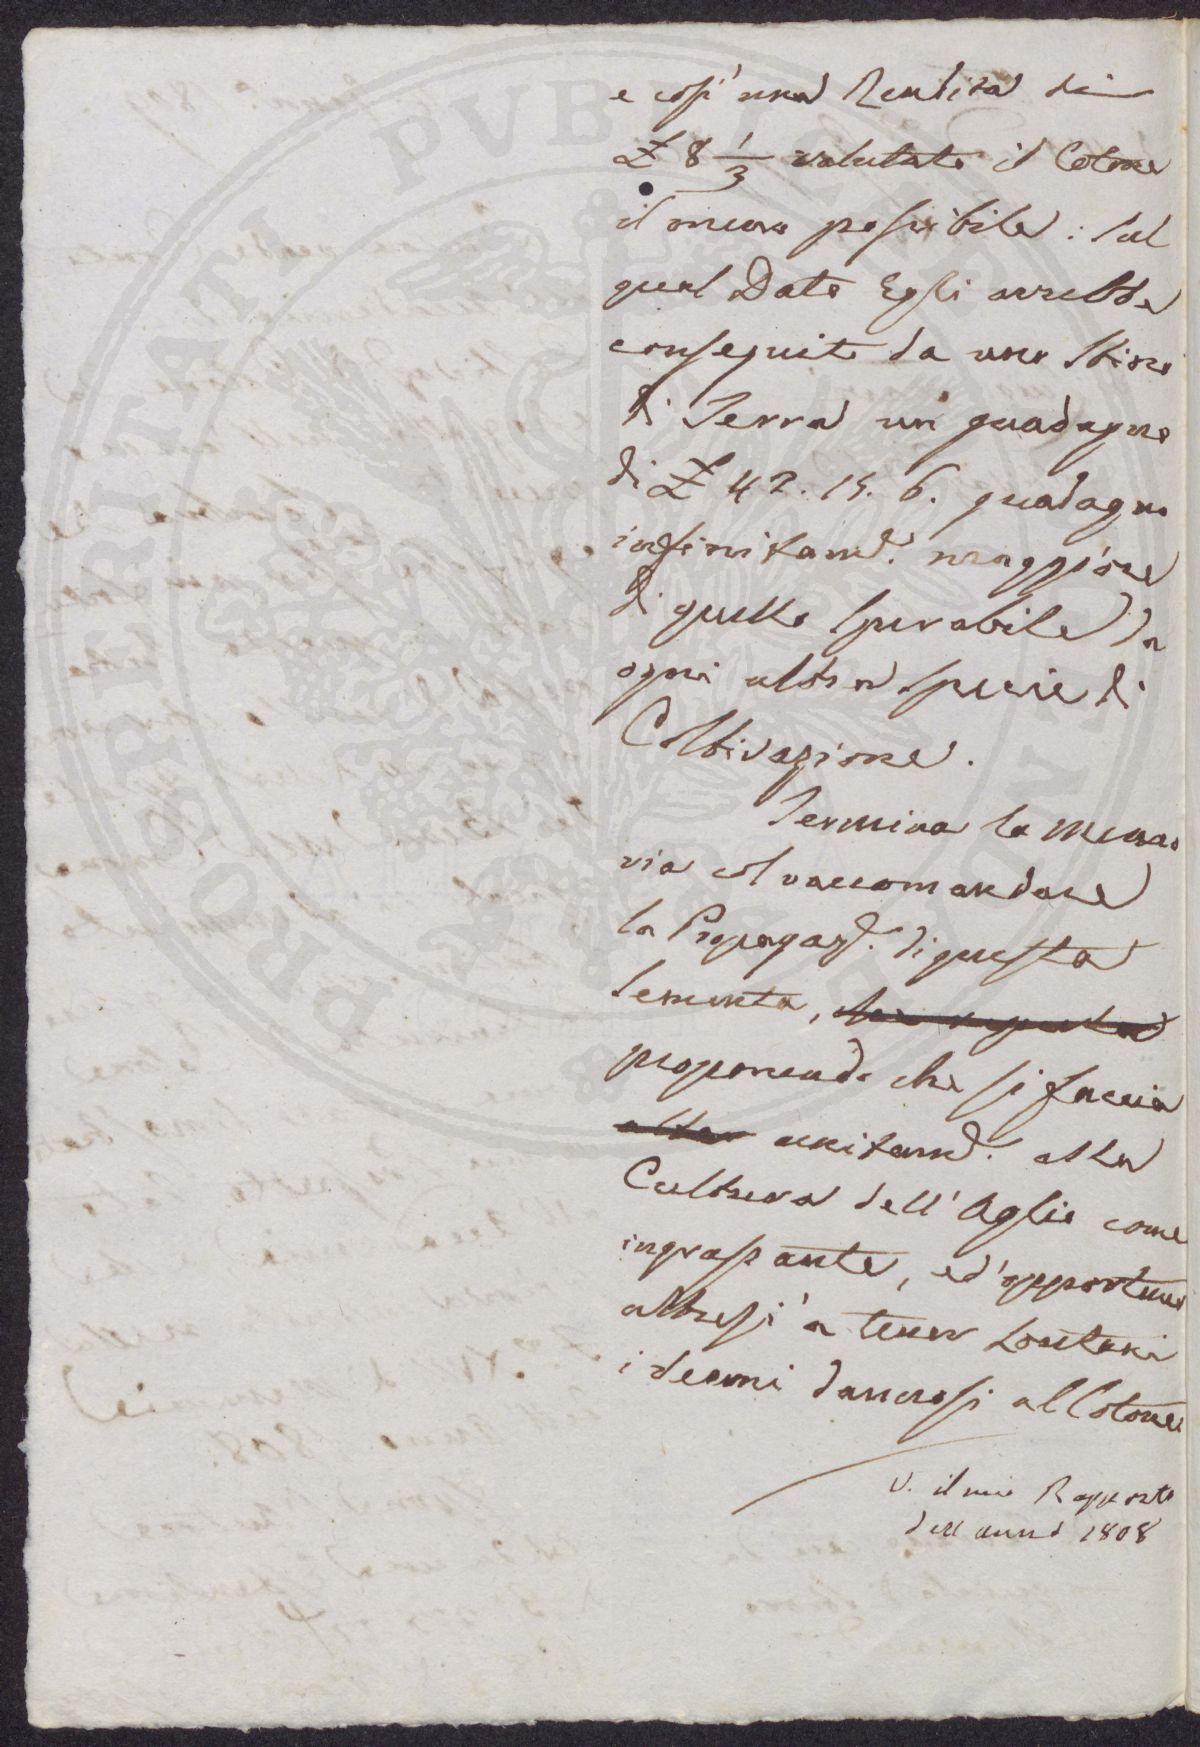 e così una Rendita di
£ 8 1/3 valutato il Cotone
il meno possibile: sul
qual Dato Egli avrebbe
conseguito da uno Stioro
di Terra un guadagno
di £ 42. 15. 6. guadagno
infinitam.e maggiore
di quello sperabile da
ogni altra specie di
Coltivazione.
Termina la Memo
ria col raccomandare
la Propagaz.e di questa
sementa,
proponendo che si faccia
unitam.e alla
Cultura dell'Aglio come
ingrassante, ed opportuno
altresì a tener lontani
i vermi dannosi al Cotone
V. il mio Rapporto
dell'anno 1808
PROSPERITATI PVBLICAE